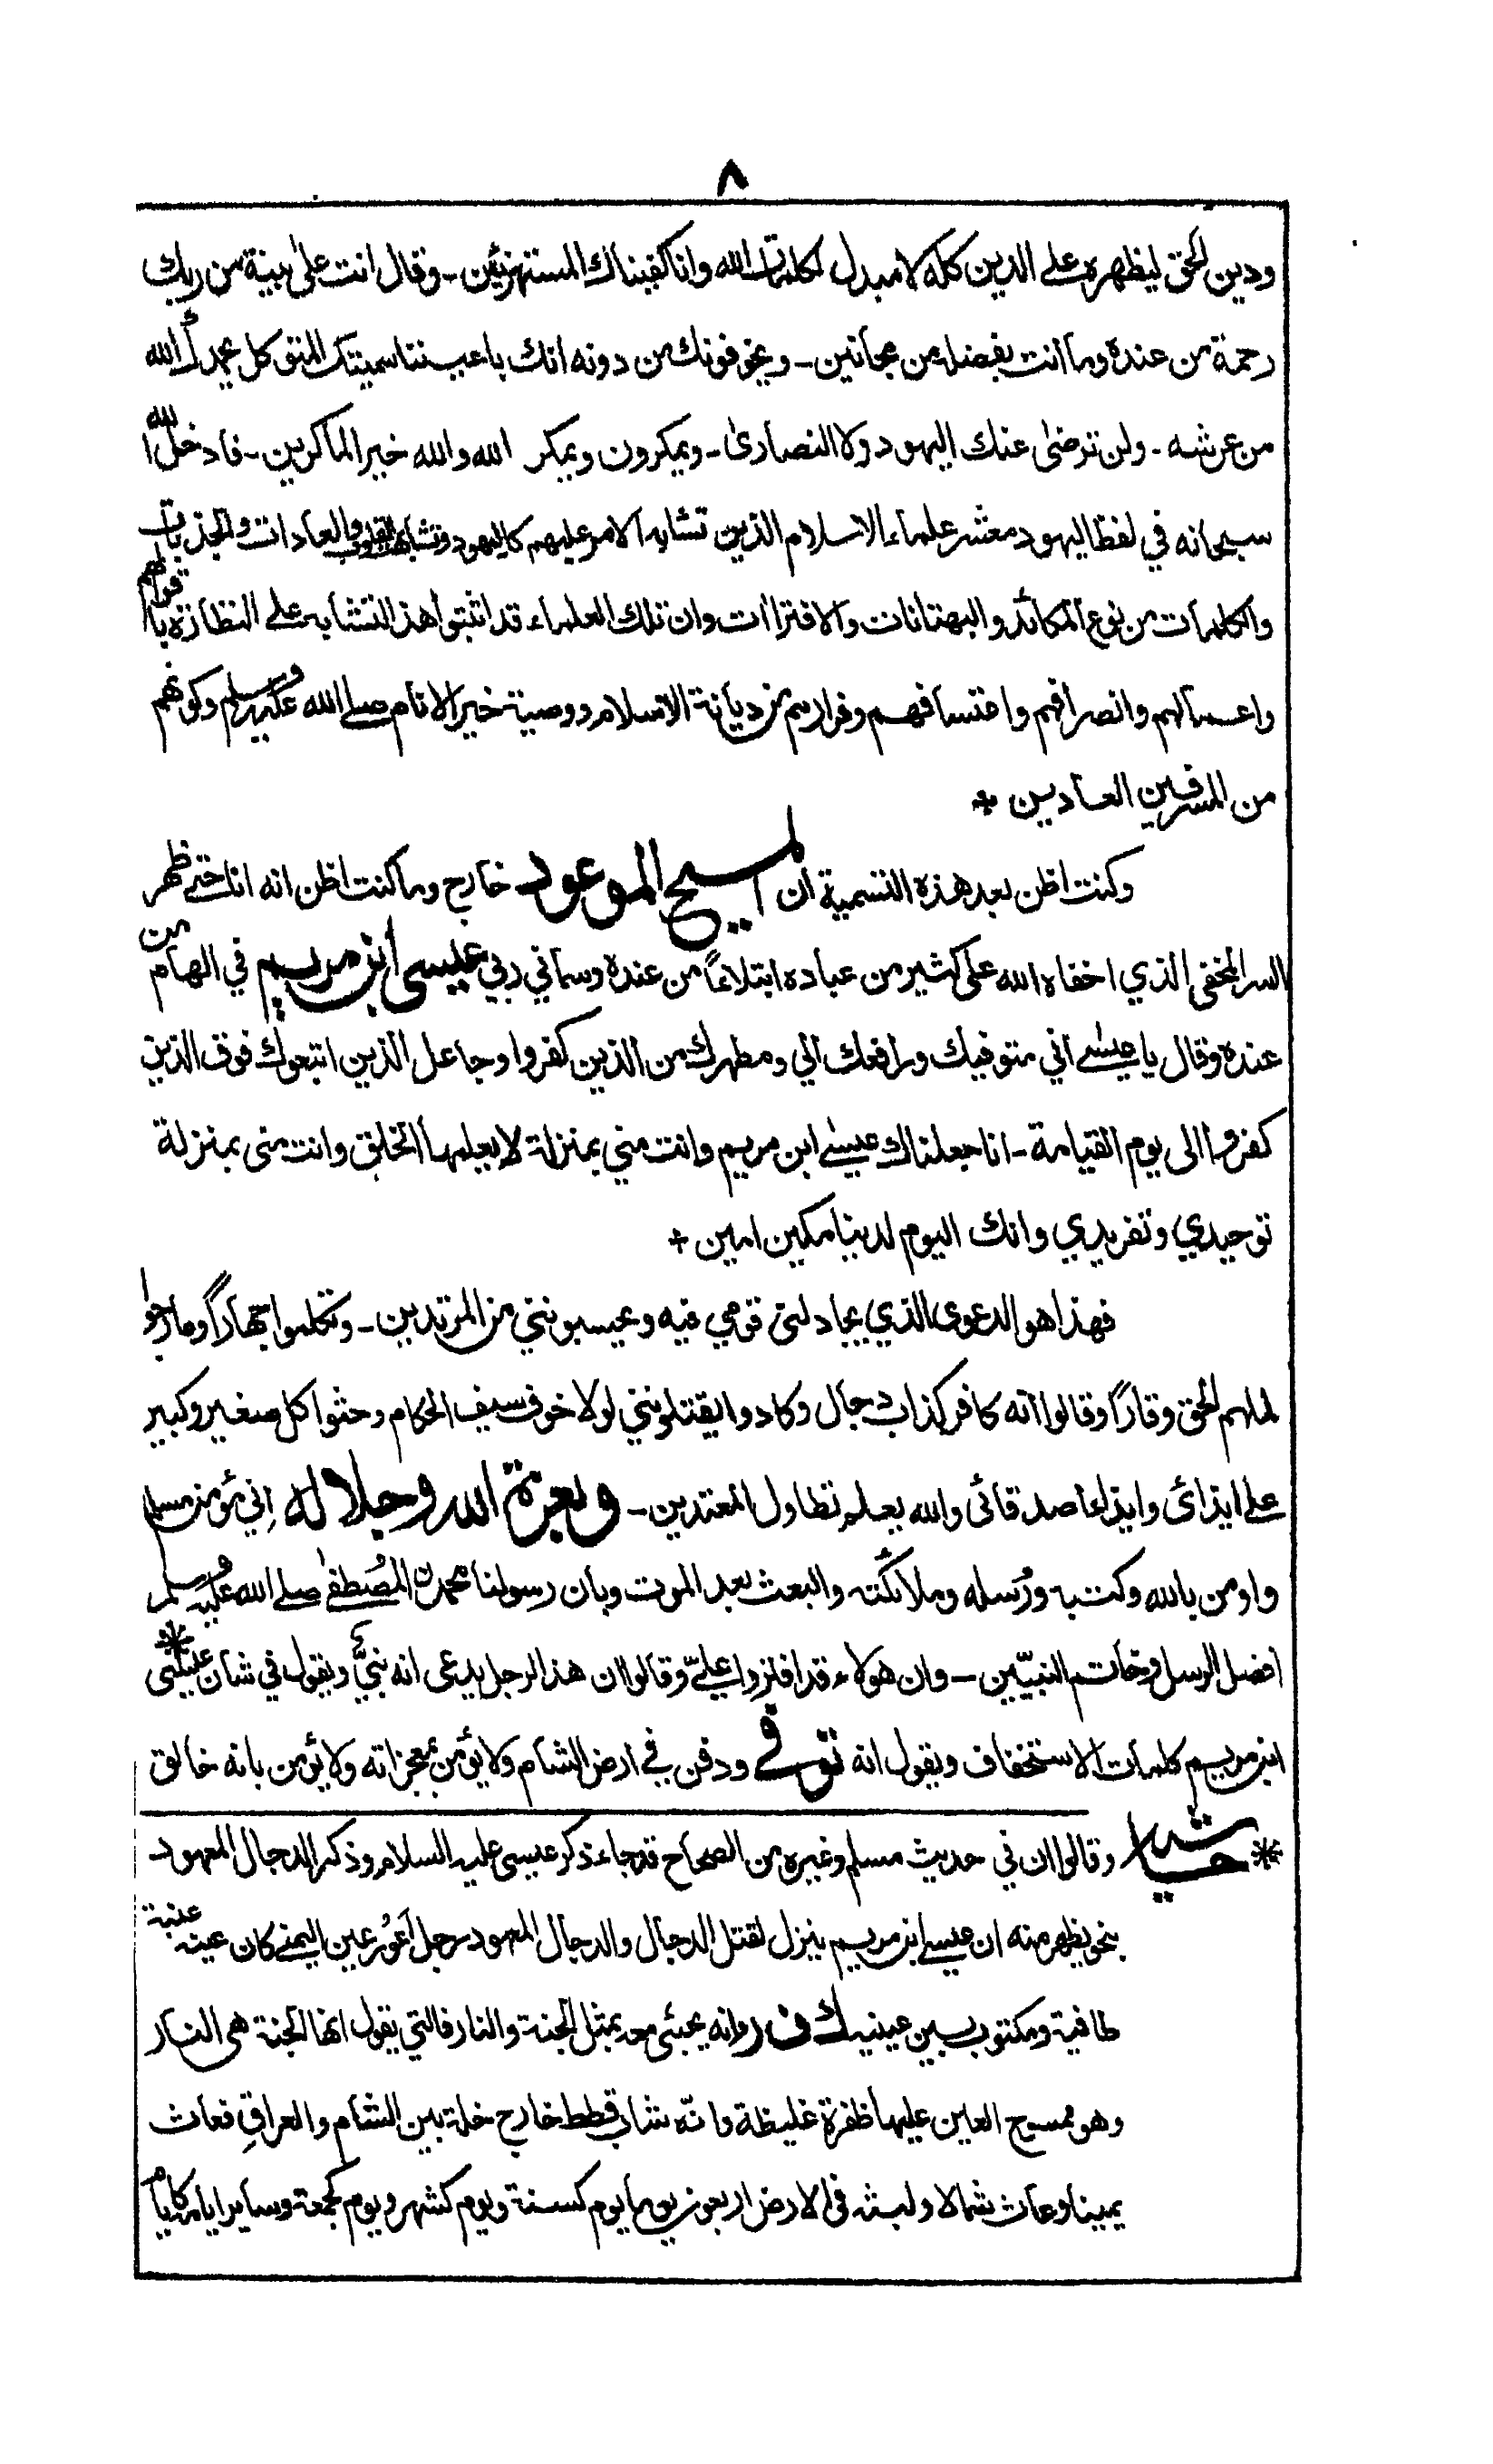 ٨
ودين الحق ليظهره على الدين كله لا مبدل لكلمات الله وانا كفيناك المستهزئين - وقال انت على بينة من ربك
رحمة من عنده وما انت بفضله من مجانين - ويخوفونك من دونه انك باعيننا سميتك المتوكل يحمدك الله
من عرشه - ولن ترضى عنك اليهود ولا النصارى - ويمكرون ويمكر الله والله خير الماكرين - فادخل الله
سبحانه في لفظ اليهود معشر علماء الاسلام الذين تشابه الامر عليهم كاليهود وتشابهت القلوب والعادات والجذبات
والكلمات من نوع المكائد والبهتانات والافتراات وان تلك العلماء قد اثبتوا هذا التشابه على النظارة باقوالهم
واعمالهم وانصرافهم واعتسافهم وفرارهم من ديانة الاسلام ووصية خير الانام صلى الله عليه وسلم وكونهم
من المسرفين العادين +
وكنت اظن بعد هذه التسمية ان المسيح الموعود خارج وما كنت اظن انه انا حتى ظهر
السر المخفى الذي اخفاه الله على كثير من عباده ابتلاءً من عنده وسماني ربي عيسى ابن مريم في الهام من
عنده وقال يا عيسى اني متوفيك ورافعك الي ومطهرك من الذين كفروا وجاعل الذين اتبعوك فوق الذين
كفروا الى يوم القيامة - انا جعلناك عيسى ابن مريم وانت مني بمنزلة لا يعلمها الخلق وانت منى بمنزلة
توحيدي وتفريدي وانك اليوم لدينا مكين امين +
فهذا هو الدعوى الذي يجادلني قومي فيه ويحسبونني من المرتدين - وتكلموا جهاراً وما رجوا
لملهم الحق وقاراً وقالوا انه كافر كذاب دجال وكادوا يقتلونني لولا خوف سيف الحكام وحثوا كل صغير وكبير
على ايذائى وايذاء اصدقائى والله يعلم تطاول المعتدين - وبعزة الله وجلاله اني مؤمن مسلم
واومن بالله وكتبه ورسله وملائكته والبعث بعد الموت وبان رسولنا محمدن المصطفى صلى الله عليه وسلم
افضل الرسل وخاتم النبيّين - وان هولاء قد افتروا عليّ وقالوا ان هذا الرجل يدعى انه نبيٌّ ويقول في شان عيسى *
ابن مريم كلمات الاستخفاف ويقول انه توفى ودفن في ارض الشام ولا يؤمن بمعجزاته ولا يؤمن بانه خالق
* حاشيه وقالوا ان في حديث مسلم وغيره من الصحاح قد جاء ذكر عيسى عليه السلام وذكر الدجال المعهود
بنحو يظهر منه ان عيسى ابن مريم ينزل لقتل الدجال والدجال المعهود رجل اعور عين اليمنى كان عينه عنبة
طافية ومكتوب بين عينيه ك ف ر وانه يجئى معه بمثل الجنة والنار فالتي يقول انها الجنة هى النار
وهو ممسوح العين عليها ظفرة غليظة وانّه شاب قطط خارج خلة بين الشام والعراق فعاث
يمينا وعاث شمالا ولبثه في الارض اربعون يوما يوم كسنة ويوم كشهر ويوم كجمعة وساير ايامه كايام